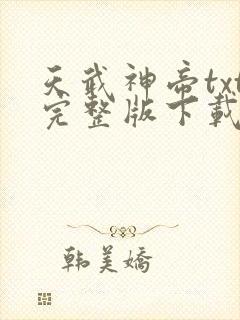 天武神帝txt
完整版下载
韩美娇